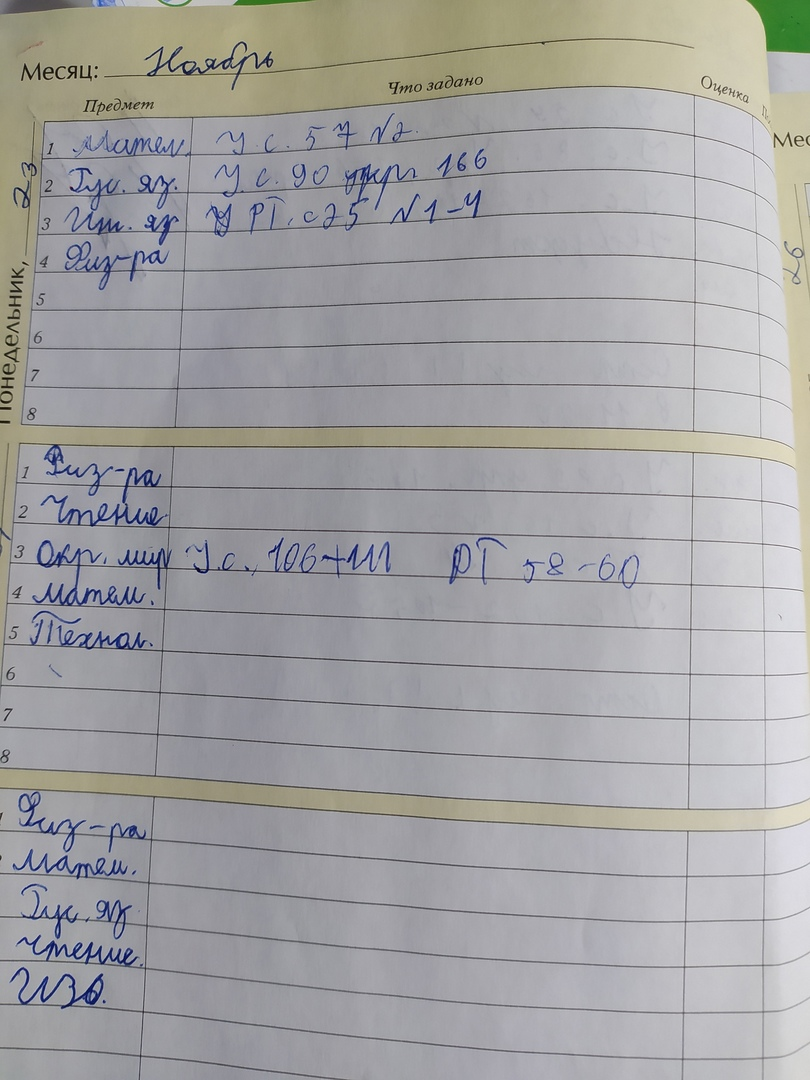 Месяц: Ноябрь
Предмет Что задано Оценка
Понедельник, 23
1 Матем. У. с. 57 №2.
2 Рус. яз. У. с. 90 упр. 166
3 Ин. яз РТ. с 25 №1-4
4 Физ-ра
5
6
7
8
1 Физ-ра
2 Чтение
3 Окр. мир У. с. 106-111 РТ 58-60
4 матем.
5 Технол.
6
7
8
Физ-ра
Матем.
Рус. яз
чтение.
ИЗО.
Мес
26